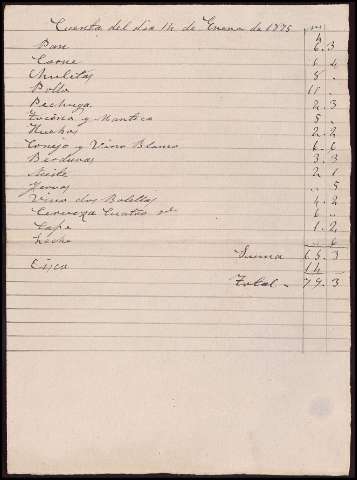 Cuenta del dia 14 de Enero de 1875
Pan 6 . 3
Carne 4
Chuletas 8 .
Pollo 11 .
Pechuga 2 . 3
Tocino y Manteca 5 .
Huebos 2 . 2
Conejo y Vino Blanco 6 . 6
Berduras 3 . 3
Aceite 2 . 1
.. 5
Vino dos Botellas 4 . 2
Cerveza Cuatro 6 ..
Cafe 1 . 2
Leche .. 6
Suma 65 . 3
Cisco 14
Total .. 79 . 3